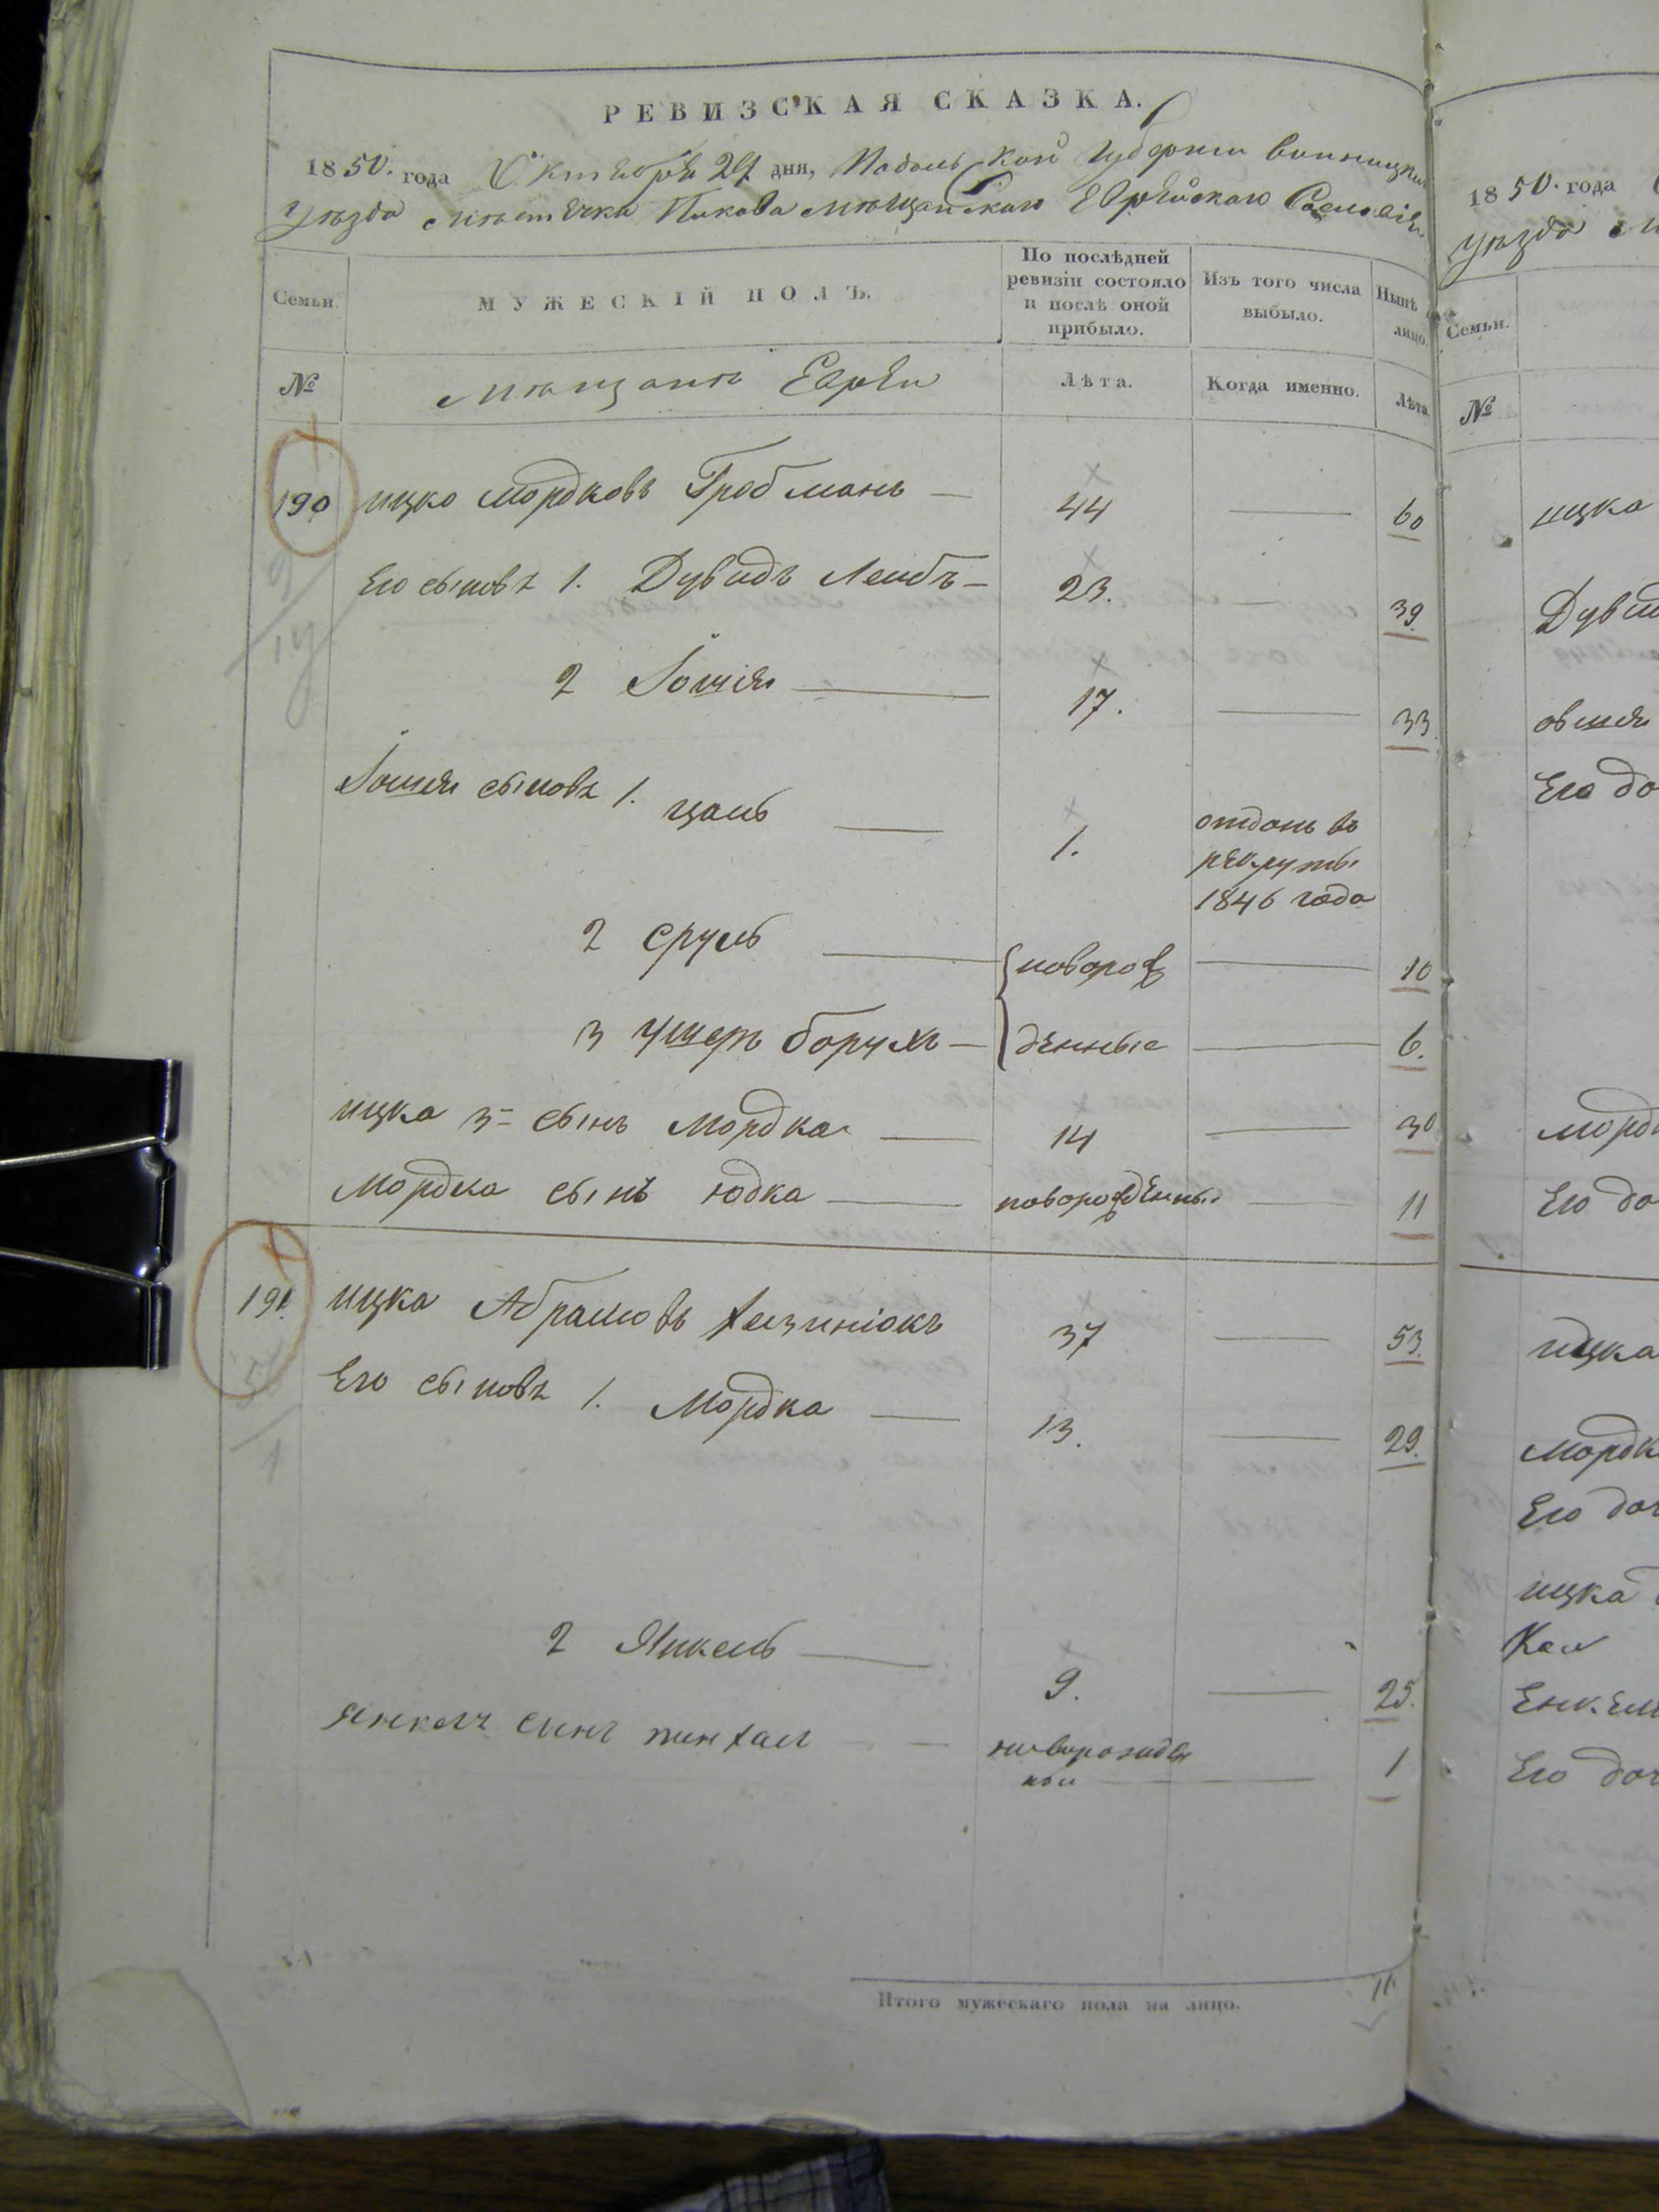 РЕВИЗСКАЯ СКАЗКА.
1850. года Октября 27 дня, Подольской Губернии Винницкаго
уѣзда мѣстечка Пикова мѣщанскаго Еврейскаго Сословія
Семьи.
МУЖЕСКІЙ ПОЛЪ.
По послѣдней ревизіи состояло и послѣ оной прибыло.
Изъ того числа выбыло.
Нынѣ лицо.
№
мѣщане Евреи
Лѣта.
Когда именно.
Лѣта
190 ицко мордковъ Гробманъ — 44 — 60
Его сыновя 1. Дувидъ Леибъ — 23. — 39
2 Іошія — 17. — 33
Іошия сыновя 1. цаль — 1. отданъ въ
рекруты
1846 года
2 сруль — новорож — 10
3 ушеръ борухъ — денные — 6.
ицка 3й сынъ Мордка — 14 — 30
Мордка сынъ юдка — новорожденны — 11
191. ицка Абрамовъ — 37 — 53
Его сыновя 1. Мордка — 13. — 29.
2 Янкель — 9. — 25.
янкелч сынг пинхас — новорожден
ныи — 1
Итого мужескаго пола на лицо. 11
1850. года
уѣзда
Семьи.
№
ицка
Дувид
овшия
Его до
морд
Его до
ицка
мордк
Его доч
ицка
Его доч